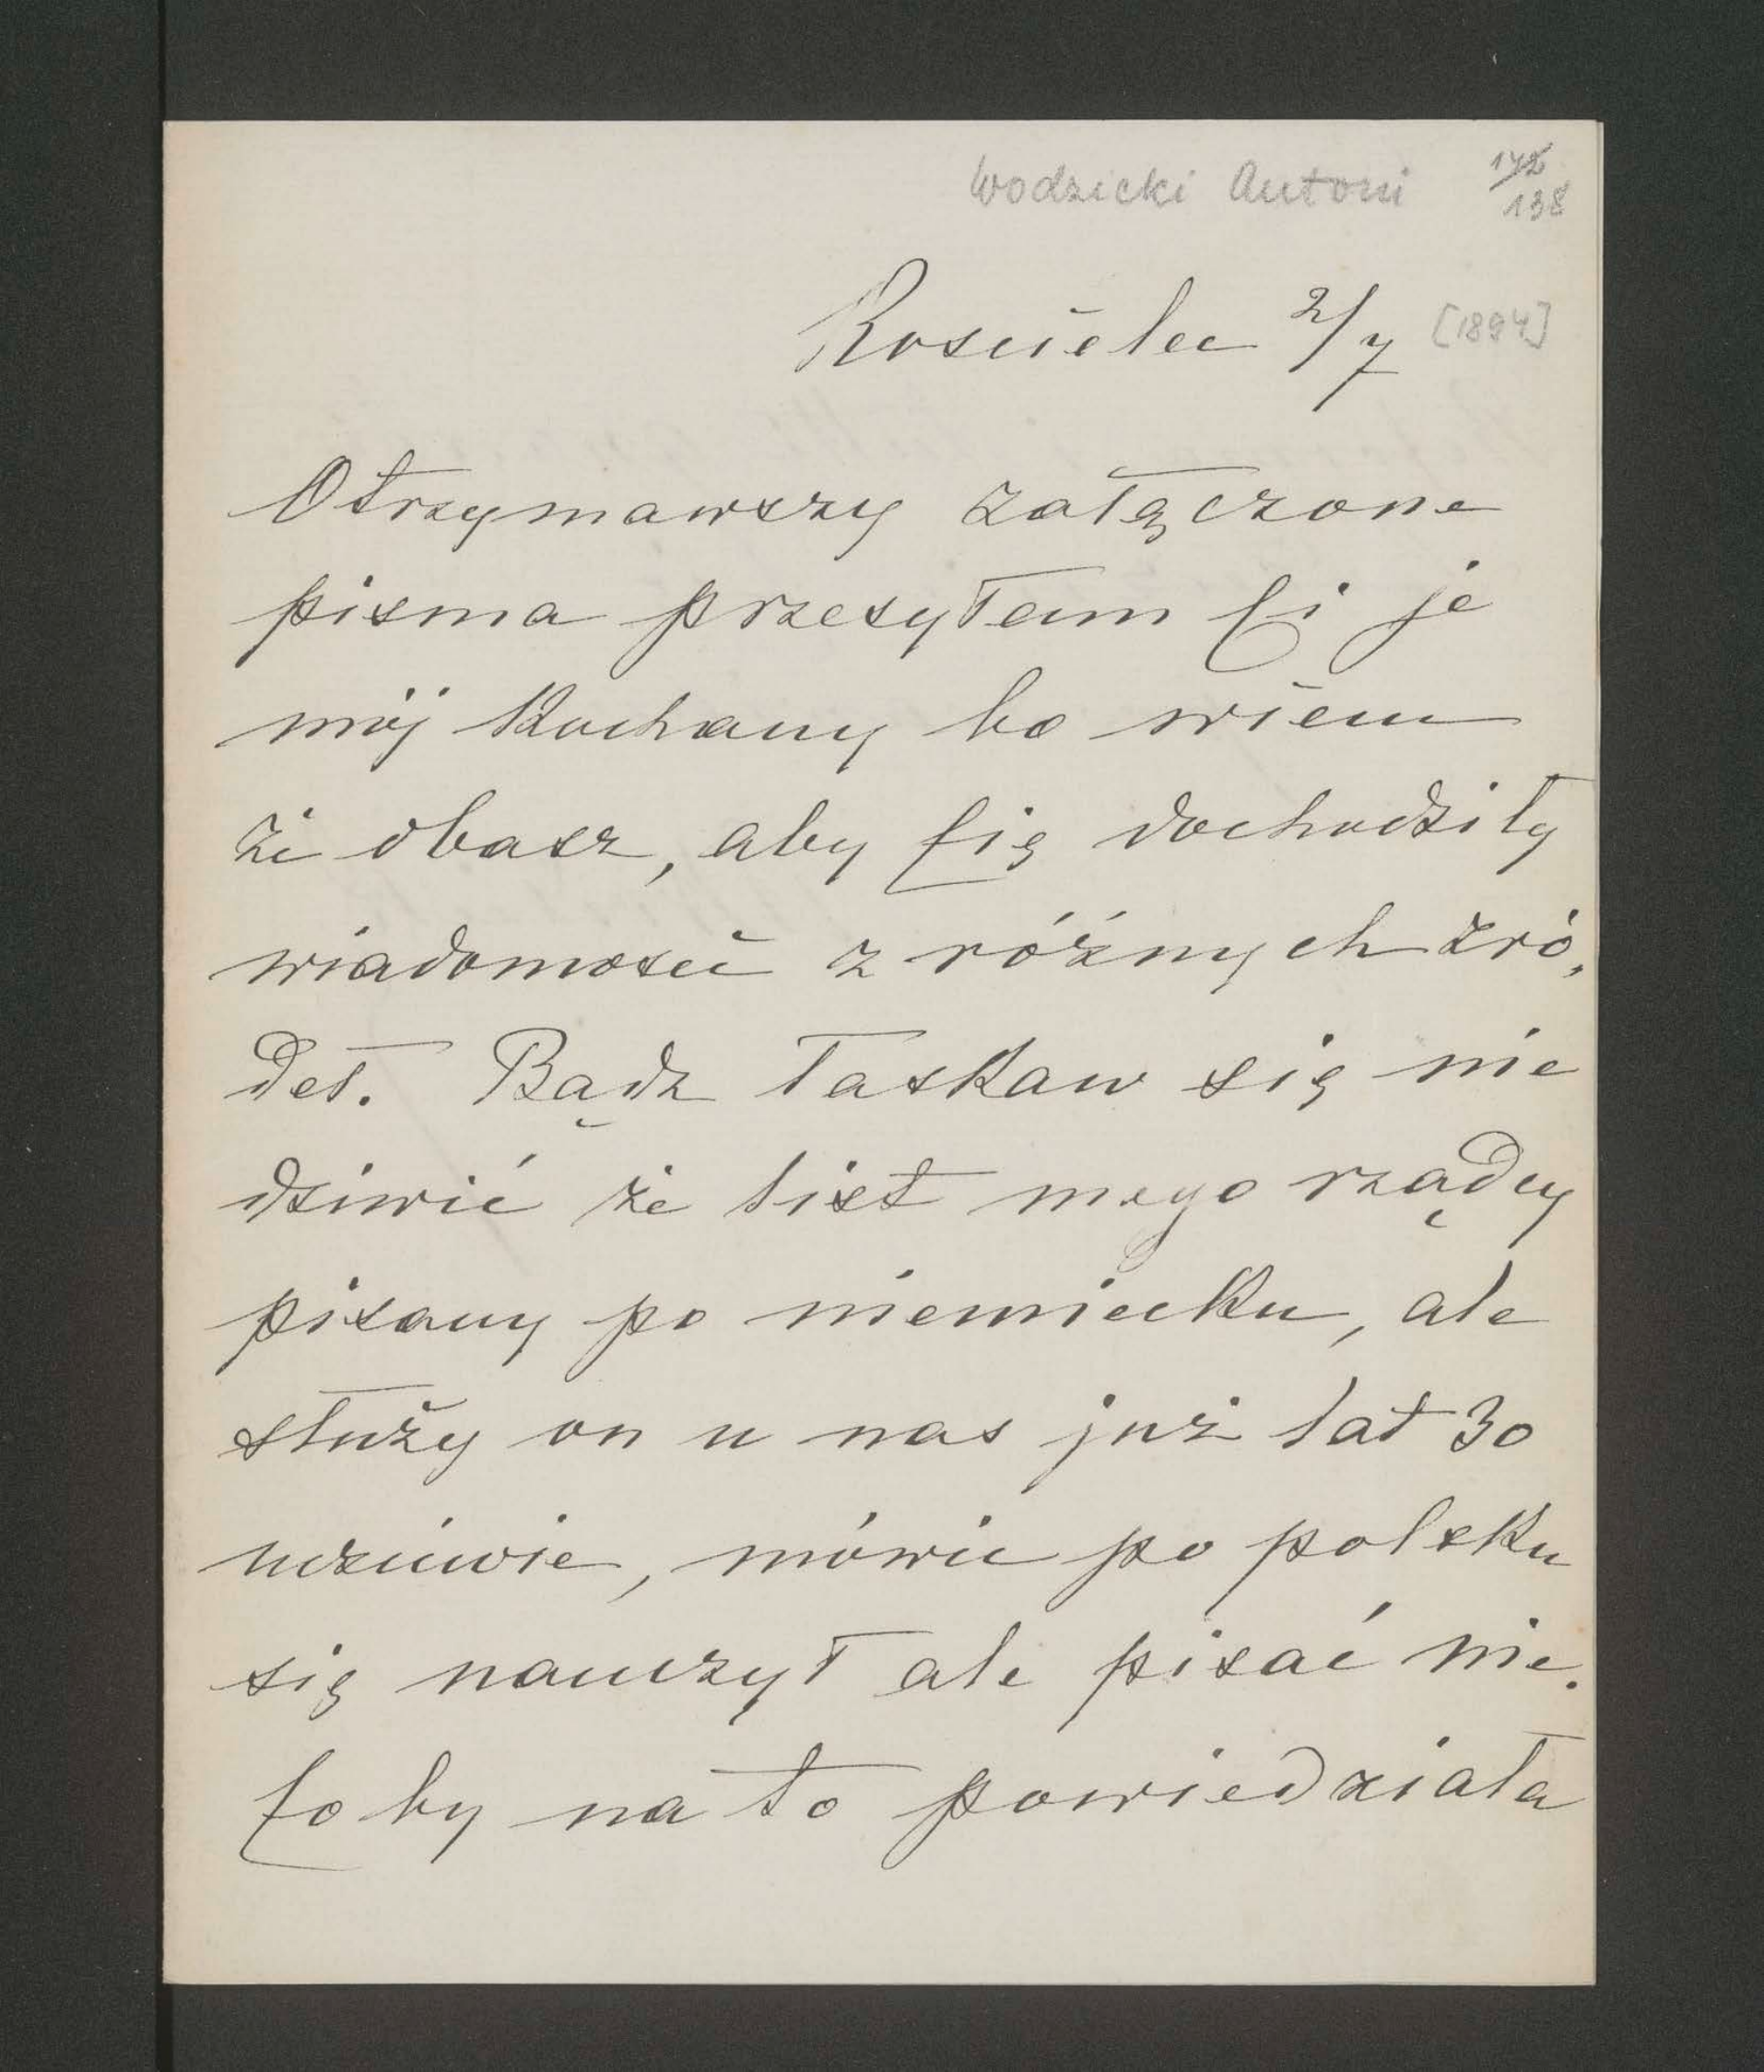 Wodzicki Antoni
138
Kościelec 2/7 [1894]
Otrzymawszy załączone
pisma przesyłam Ci je
mój Kochany bo wiem
że dbasz, aby Cię dochodziły
wiadomości z różnych źró,
deł. Bądź łaskaw się nie
dziwić że list mego rządcy
pisany po niemiecku, ale
służy on u nas już lat 30
uczciwie, mówić po polsku
się nauczył ale pisać nie.
Co by na to powiedziała